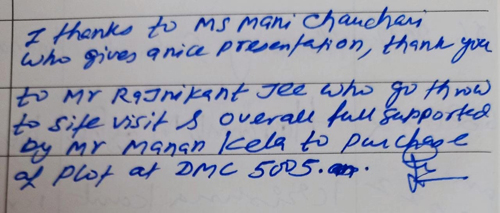 I thanks to Ms Mani Chaudhari
who gives a nice presentation, thank you
to Mr Rajnikant Jee who go throw
to site visit & overall full supported
by Mr Manan Kela to purchase
of plot at DMC 5005.